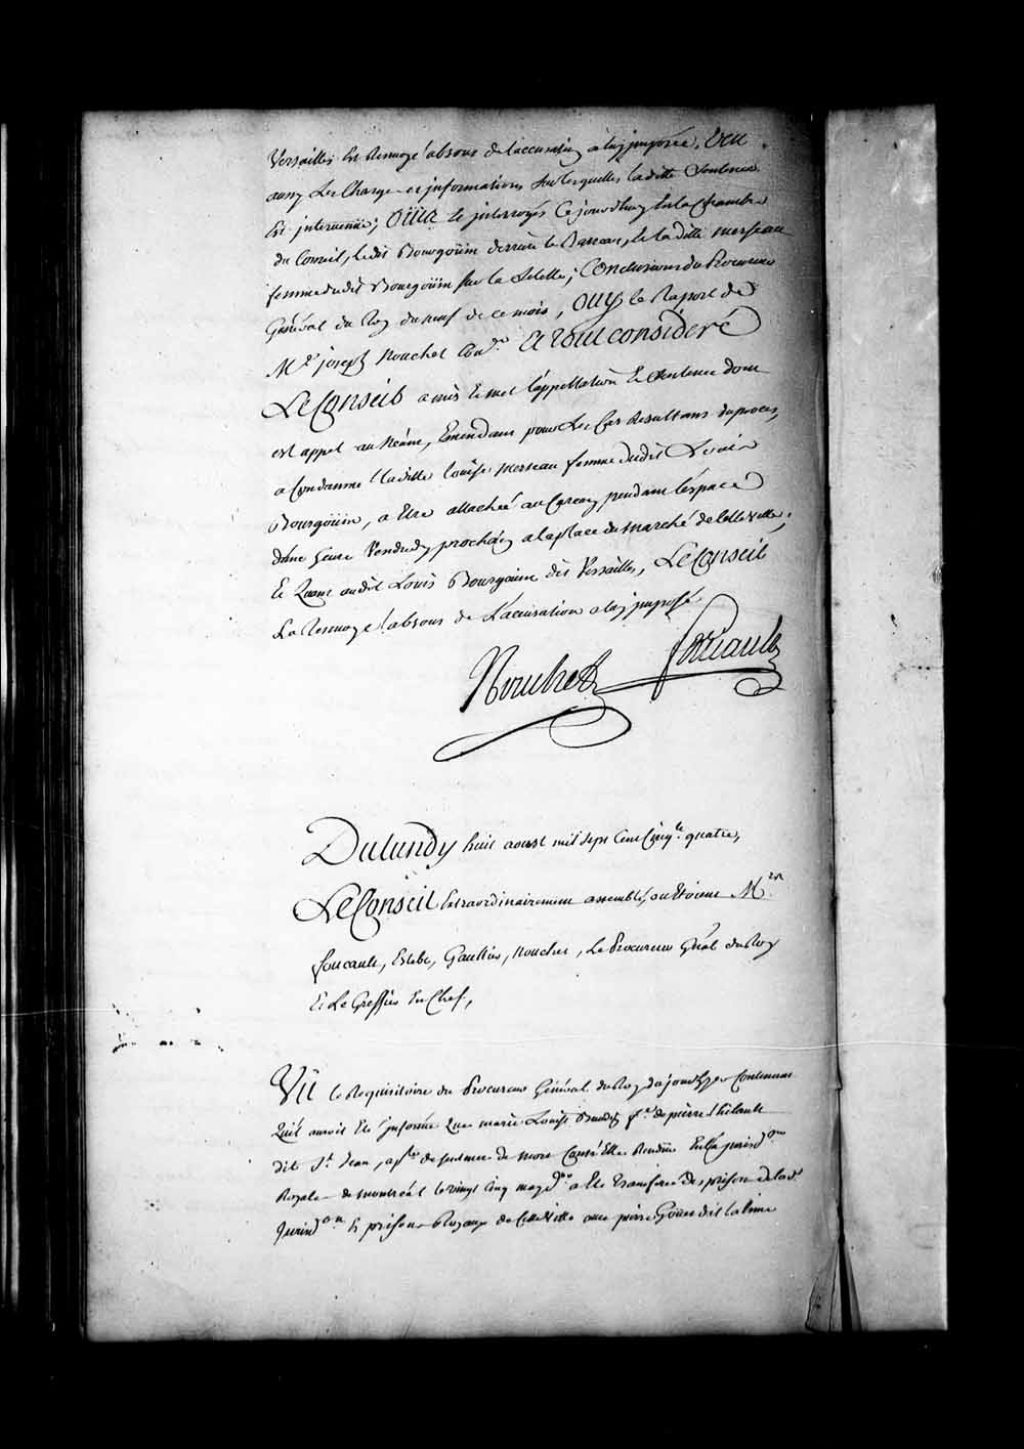 Versailles Est Renvoyé absous de l'accusation à luy imposée. Veu
aussy Les Charges et jnformations sur lesquelles ladite Sentence
Est jntervenüe; Oüis et jnterrogés Ce jourdhuy En la Chambre
du Conseil, ledit Bourgoüin derriere le Bareau, et la dite merseau
femme dudit Bourgoüin sur la Selette; Conclusions du Procureur
Général du Roy du neuf de ce mois, Ouy le Raport de
Me. joseph Nouchet Coner. Et tout considéré
Le Conseil a mis et met l'appellation Et Sentence dont
est appel au Néant, Emendant pour Les Cas Resultans du procés,
a Condamné ladite Louise merseau femme dudit Louis
Bourgoüin, a Etre attachée au Carcan pendant l'éspace
d'une heure Vendredy prochain a la place du marché de cette ville;
Et Quant audit Louis Bourgoüin dit Versailles, Le Conseil
La Renvoyé absous de L'accusation a luy jmposée
Nouchet Foucault
Du Lundy huit aoust mil sept Cent Cinqte. quatre,
Le Conseil Extraordinairement assemblé, ou Etoient Mrs.
foucault, Estebe, Gaultier, Nouchet, Le Procureur Gnéal du Roy
Et Le Greffier En Chef,
Vû le Requisitoire du Procureur Général du Roy de jourdhuy Contenant
Quil auroit Eté jnformé Que marie Louise fe. de pierre Thibault
dit St. Jean, aple. de sentence de mort Contr'Elle Rendüe En la jurisdon.
Royale de montréal le vingt Cinq may don. a Eté transferée Des prisons de lade.
Jurisdon. Es prisons Royaux de Cette Ville avec pierre